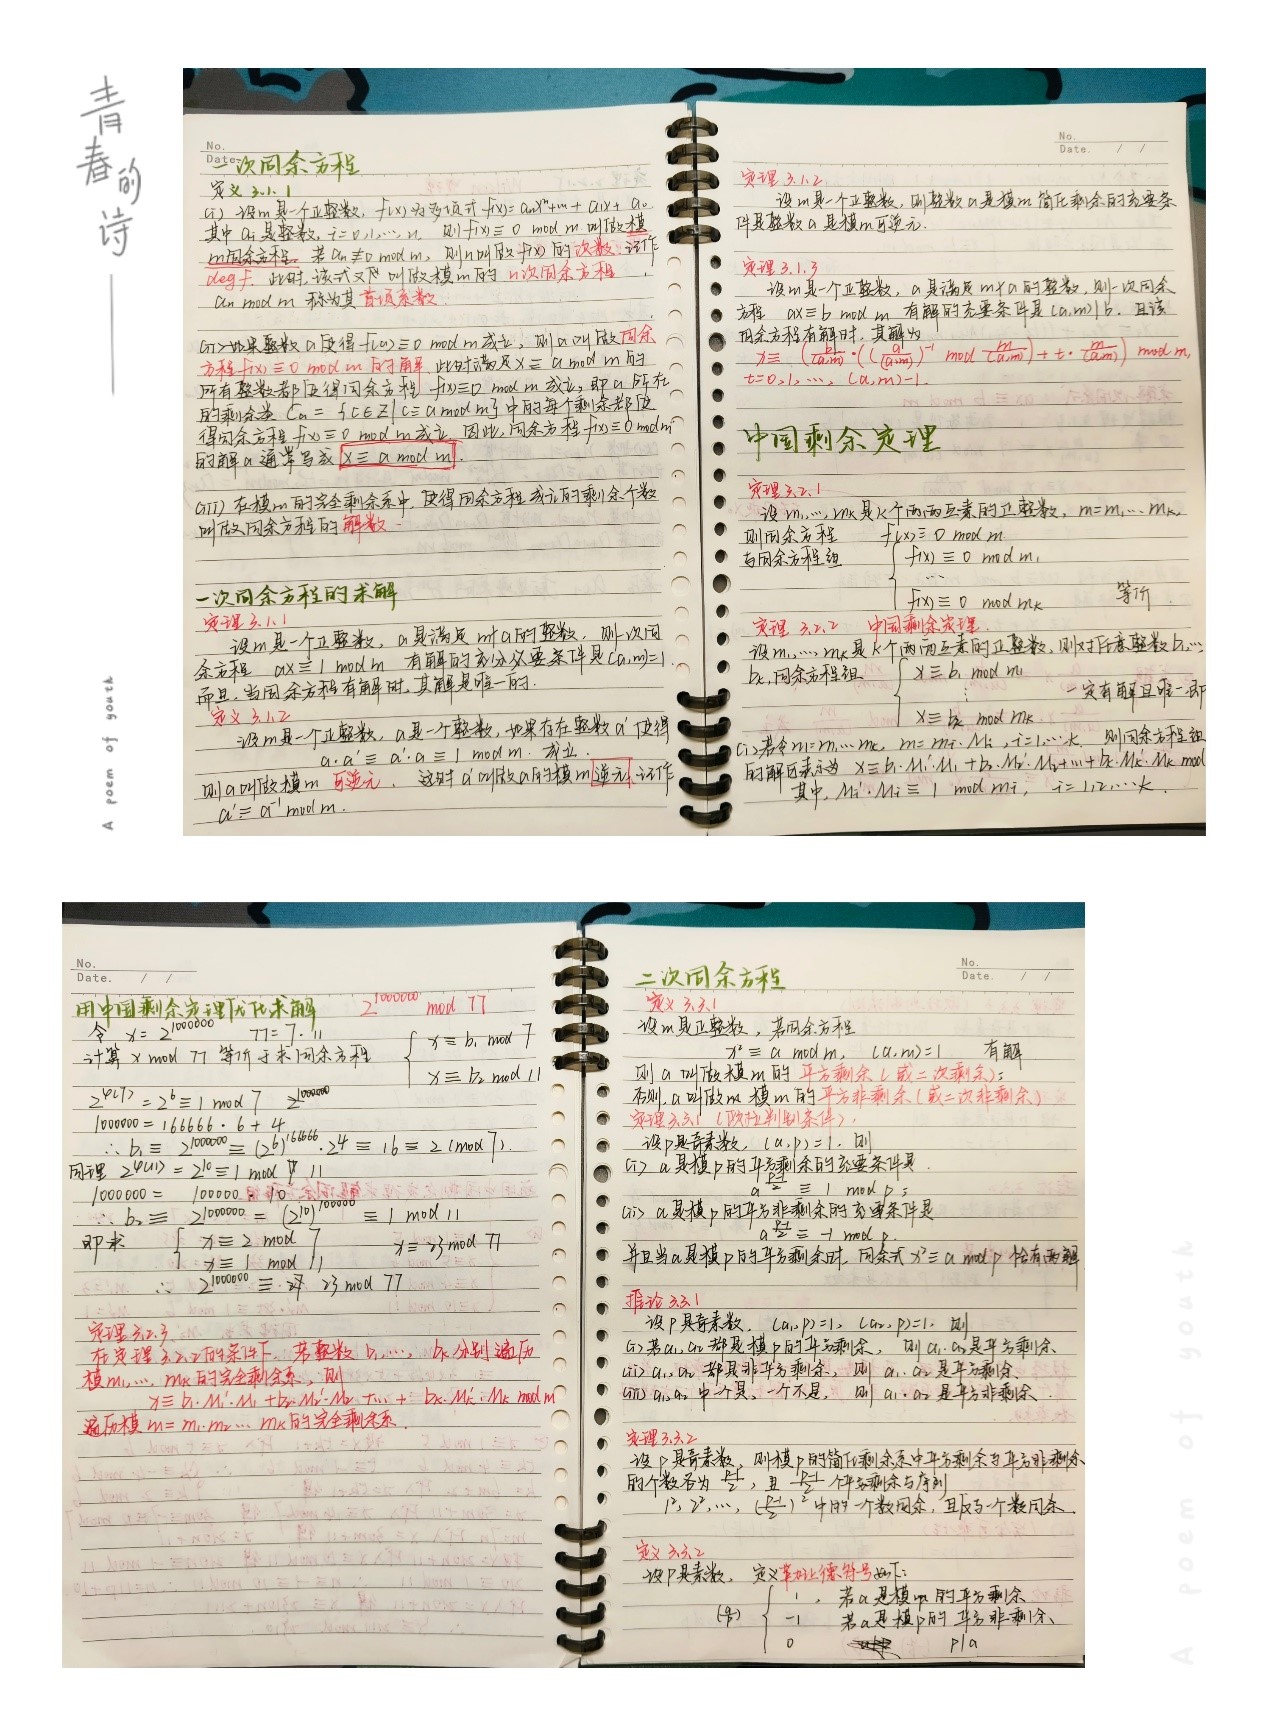 青春的诗
A poem of youth
No.
Date
一次同余方程
定义 3.1.1
(i) 设m是一个正整数, f(x)为多项式 f(x)=aₙxⁿ+…+a₁x+a₀
其中 aᵢ是整数, i=0,1,…,n, 则 f(x)≡0 mod m 叫做模
m同余方程. 若 aₙ≢0 mod m, 则n叫做f(x)的次数, 记作
deg f. 此时, 该式又叫做模m的 n次同余方程,
aₙ mod m 称为其首项系数
(ii) 如果整数a使得f(a)≡0 mod m成立, 则a叫做同余
方程f(x)≡0 mod m的解. 此时满足x≡a mod m的
所有整数都使得同余方程 f(x)≡0 mod m成立, 即a所在
的剩余类 Cₐ={c∈Z|c≡a mod m}中的每个剩余都使
得同余方程f(x)≡0 mod m成立. 因此, 同余方程f(x)≡0 mod m
的解a通常写成 x≡a mod m.
(iii) 在模m的完全剩余系中, 使得同余方程成立的剩余个数
叫做同余方程的解数.
一次同余方程的求解
定理 3.1.1
设m是一个正整数, a是满足 m∤a的整数, 则一次同
余方程 ax≡1 mod m 有解的充分必要条件是(a,m)=1
而且, 当同余方程有解时, 其解是唯一的.
定义 3.1.2
设m是一个正整数, a是一个整数, 如果存在整数a′使得
a·a′≡a′·a≡1 mod m. 成立.
则a叫做模m 可逆元, 这时a′叫做a的模m逆元, 记作
a′≡a⁻¹ mod m.
No.
Date. / /
定理 3.1.2
设m是一个正整数, 则整数a是模m简化剩余的充要条
件是整数a是模m可逆元.
定理 3.1.3
设m是一个正整数, a是满足m∤a的整数, 则一次同余
方程 ax≡b mod m 有解的充要条件是(a,m)|b. 且该
同余方程有解时, 其解为
x≡(b/(a,m)·((a/(a,m))⁻¹ mod m/(a,m))+t·m/(a,m)) mod m,
t=0,1,…,(a,m)-1.
中国剩余定理
定理 3.2.1
设m₁,…,mₖ是k个两两互素的正整数, m=m₁…mₖ,
则同余方程 f(x)≡0 mod m
与同余方程组 { f(x)≡0 mod m₁
…
f(x)≡0 mod mₖ 等价.
定理 3.2.2 中国剩余定理.
设m₁,…,mₖ是k个两两互素的正整数, 则对任意整数b₁,…
bₖ, 同余方程组 { x≡b₁ mod m₁
⋮ 一定有解且唯一 即
x≡bₖ mod mₖ
(i) 若令 m=m₁…mₖ, m=mᵢ·Mᵢ, i=1,…k. 则同余方程组
的解可表示为 x≡b₁·M₁′·M₁+b₂·M₂′·M₂+…+bₖ·Mₖ′·Mₖ mod
其中, Mᵢ′·Mᵢ≡1 mod mᵢ, i=1,2,…k.
No.
Date. / /
用中国剩余定理优化求解 2^1000000 mod 77
令 x=2^1000000 77=7·11
计算 x mod 77 等价于求同余方程 { x≡b₁ mod 7
x≡b₂ mod 11
2^φ(7)=2⁶≡1 mod 7 2^1000000
1000000=166666·6+4
∴ b₁≡2^1000000≡(2⁶)^166666·2⁴≡16≡2 (mod 7).
同理 2^φ(11)=2^10≡1 mod 11
1000000= 100000·10
∴ b₂≡ 2^1000000=(2^10)^100000≡1 mod 11
即求 { x≡2 mod 7
x≡1 mod 11 x≡23 mod 77
∴ 2^1000000≡ 23 mod 77
定理 3.2.3
在定理3.2.2的条件下, 若整数 b₁,…, bₖ分别遍历
模m₁,…,mₖ的完全剩余系, 则
x≡b₁·M₁′·M₁+b₂·M₂′·M₂+…+bₖ·Mₖ′·Mₖ mod m
遍历模 m=m₁·m₂…mₖ的完全剩余系.
No.
Date. / /
二次同余方程
定义 3.3.1
设m是正整数, 若同余方程
x²≡a mod m, (a,m)=1 有解
则 a叫做模m的 平方剩余(或二次剩余);
否则, a叫做 模m的平方非剩余(或二次非剩余)
定理3.3.1 (欧拉判别条件).
设p是奇素数, (a,p)=1. 则
(i) a是模p的平方剩余的充要条件是.
a^((p-1)/2)≡1 mod p;
(ii) a是模p的平方非剩余的充要条件是
a^((p-1)/2)≡-1 mod p.
并且当a是模p的平方剩余时, 同余式 x²≡a mod p 恰有两解
推论 3.3.1
设p是奇素数. (a₁,p)=1, (a₂,p)=1, 则
(i) 若a₁,a₂都是模p的平方剩余, 则 a₁·a₂是平方剩余.
(ii) a₁,a₂都是非平方剩余, 则 a₁·a₂是平方剩余.
(iii) a₁,a₂中一个是, 一个不是, 则 a₁·a₂是平方非剩余.
定理3.3.2
设p是奇素数, 则模p的简化剩余系中平方剩余与平方非剩余
的个数各为 (p-1)/2, 且 (p-1)/2 个平方剩余与序列
1²,2²,…,((p-1)/2)² 中的一个数同余, 且仅与一个数同余.
定义 3.3.2
设p是素数, 定义勒让德符号如下:
{ 1, 若a是模p的平方剩余
-1 若a是模p的平方非剩余.
0 p|a
A poem of youth